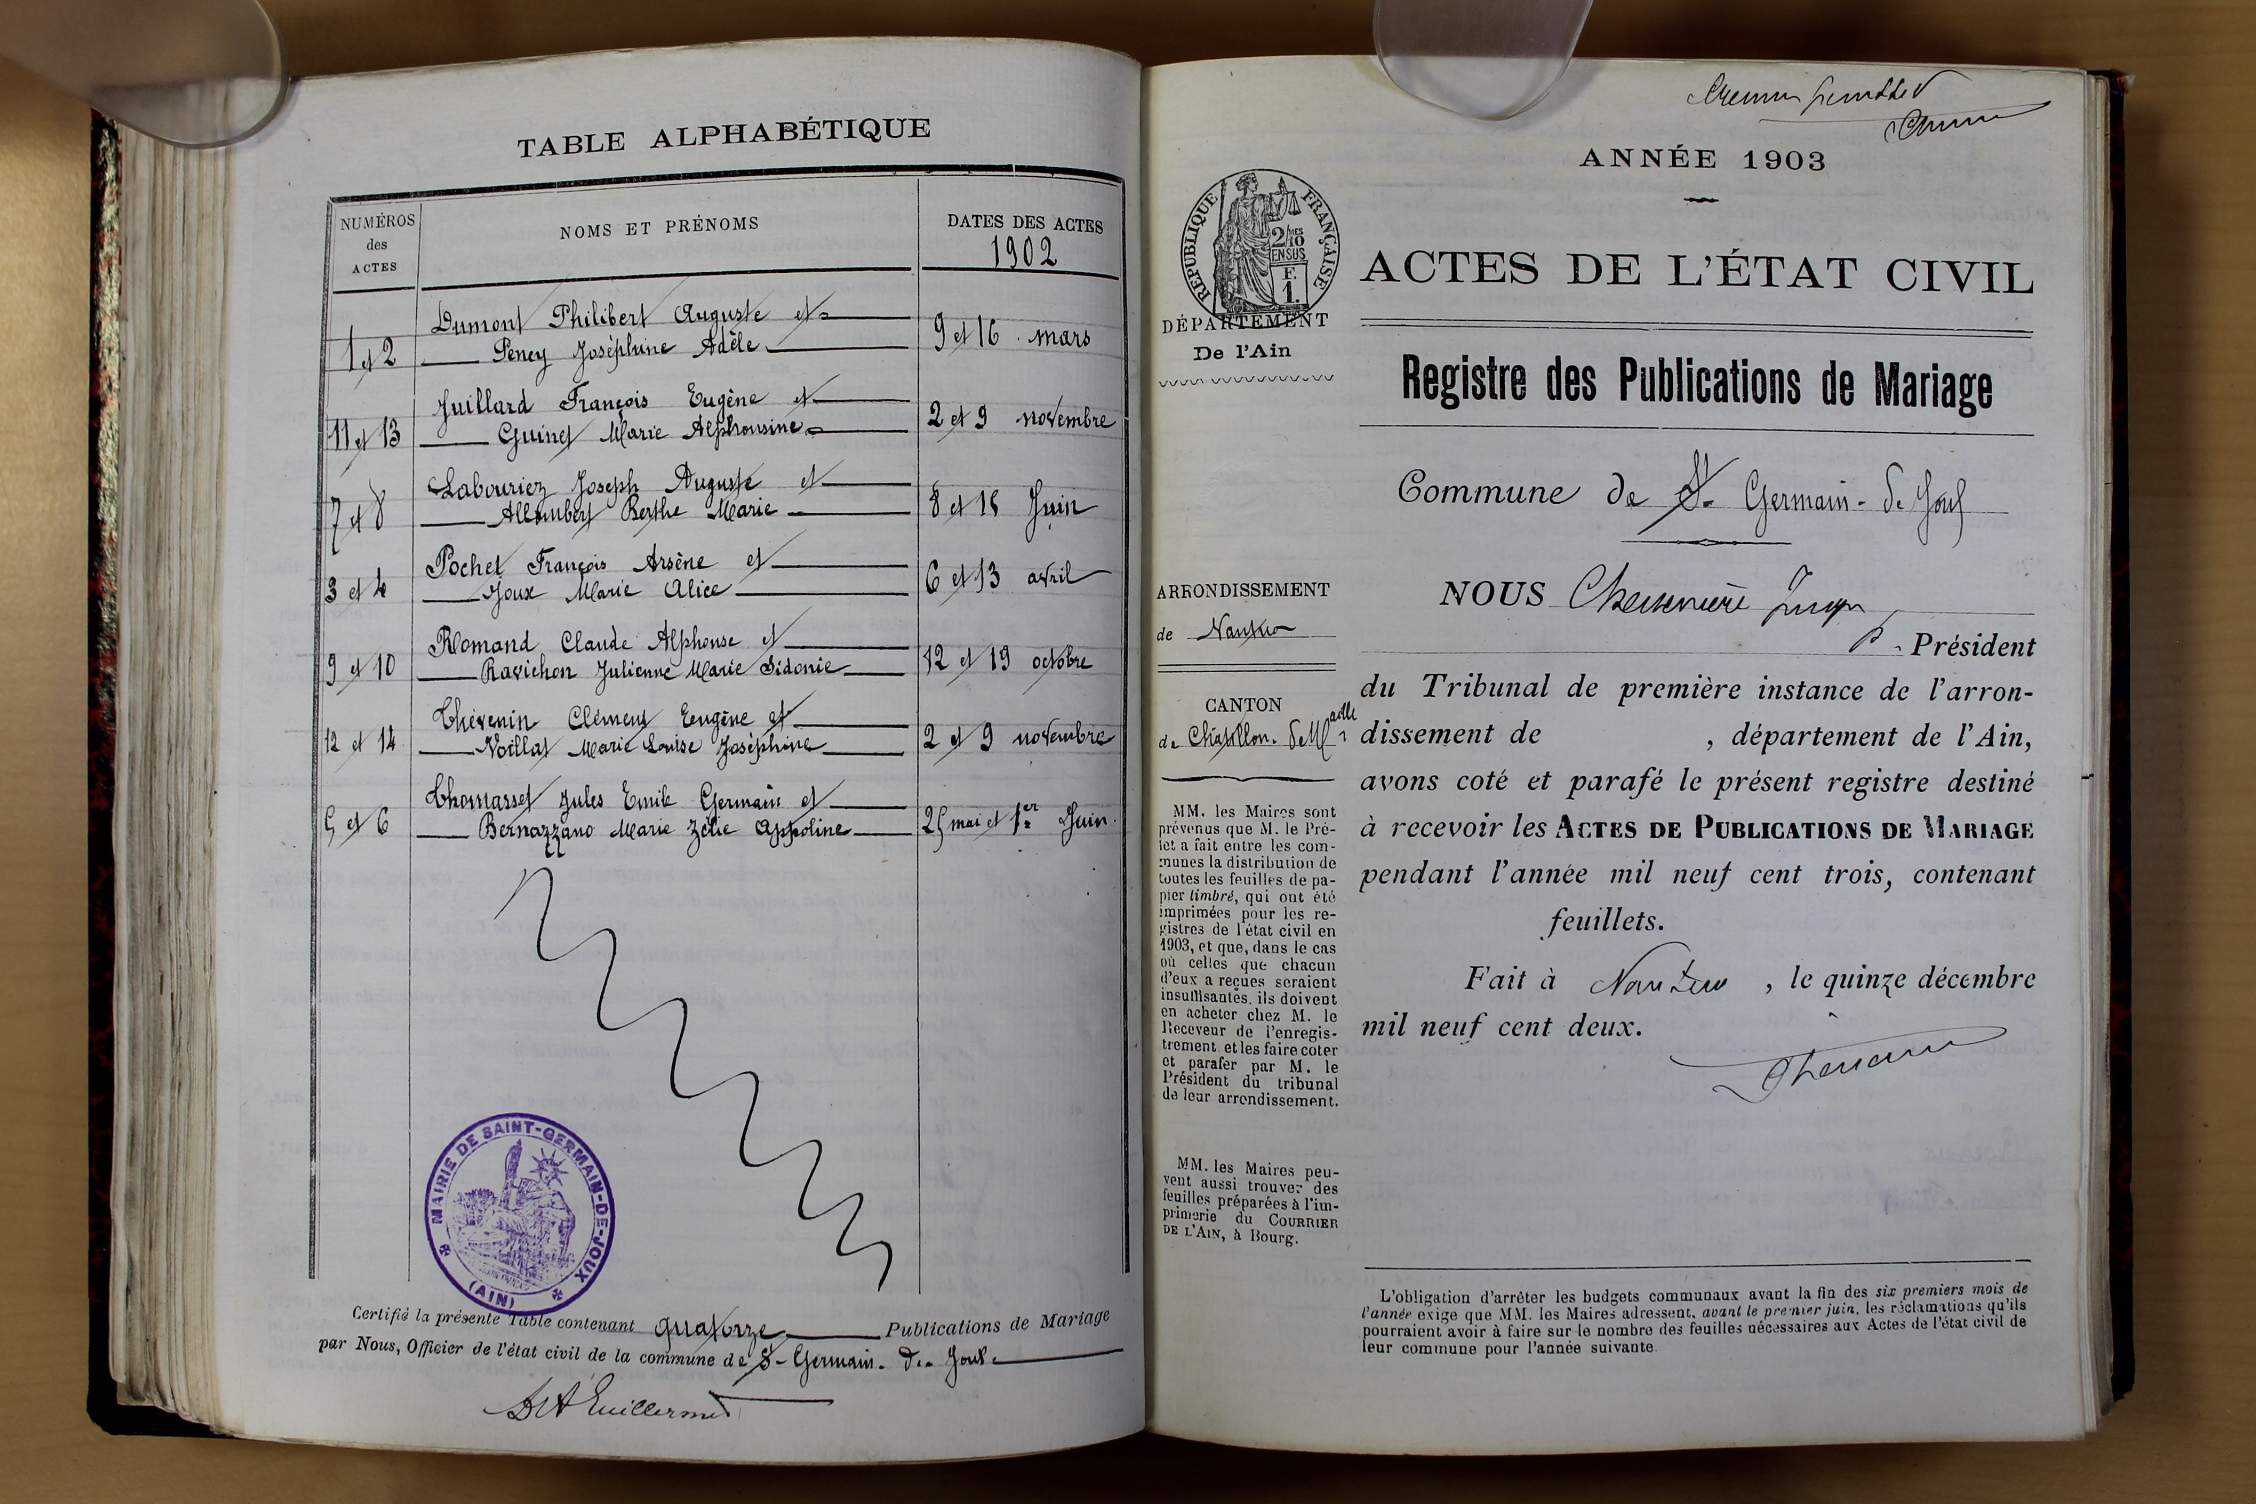 TABLE ALPHABÉTIQUE
NUMÉROS des ACTES
NOMS ET PRÉNOMS
DATES DES ACTES
1902
Dumont Philibert Auguste et
1 et 2 Peney Joséphine Adèle 9 et 16 mars
Juillard François Eugène et
11 et 13 Guinet Marie Alphonsine 2 et 9 novembre
Labouriez Joseph Auguste et
7 et 8 Allombert Berthe Marie 8 et 15 Juin
Pochet François Arsène et
3 et 4 Joux Marie Alice 6 et 13 avril
Romand Claude Alphonse et
9 et 10 Ravichon Julienne Marie Sidonie 12 et 19 octobre
Thévenin Clément Eugène et
12 et 14 Noillat Marie Louise Joséphine 2 et 9 novembre
Thomasset Jules Emile Germain et
5 et 6 Bernazzano Marie Zélie Appoline 25 mai et 1er Juin
MAIRIE DE SAINT-GERMAIN-DE-JOUX
(AIN)
Certifié la présente Table contenant quatorze Publications de Mariage
par Nous, Officier de l'état civil de la commune de St-Germain-de-Joux
Guillermet
ANNÉE 1903
RÉPUBLIQUE FRANÇAISE
2/10 MES
EN SUS
F.
1.
DÉPARTEMENT
De l'Ain
ARRONDISSEMENT
de Nantua
CANTON
de Châtillon-de-Mlle
MM. les Maires sont
prévenus que M. le Pré-
fet a fait entre les com-
munes la distribution de
toutes les feuilles de pa-
pier timbré, qui ont été
imprimées pour les re-
gistres de l'état civil en
1903, et que, dans le cas
où celles que chacun
d'eux a reçues seraient
insuffisantes, ils doivent
en acheter chez M. le
Receveur de l'enregis-
trement et les faire coter
et parafer par M. le
Président du tribunal
de leur arrondissement.
MM. les Maires peu-
vent aussi trouver des
feuilles préparées à l'im-
primerie du COURRIER
DE L'AIN, à Bourg.
ACTES DE L'ÉTAT CIVIL
Registre des Publications de Mariage
Commune de St-Germain-de-Joux
NOUS
Président
du Tribunal de première instance de l'arron-
dissement de , département de l'Ain,
avons coté et parafé le présent registre destiné
à recevoir les ACTES DE PUBLICATIONS DE MARIAGE
pendant l'année mil neuf cent trois, contenant
feuillets.
Fait à Nantua , le quinze décembre
mil neuf cent deux.
L'obligation d'arrêter les budgets communaux avant la fin des six premiers mois de
l'année exige que MM. les Maires adressent, avant le premier juin, les réclamations qu'ils
pourraient avoir à faire sur le nombre des feuilles nécessaires aux Actes de l'état civil de
leur commune pour l'année suivante.